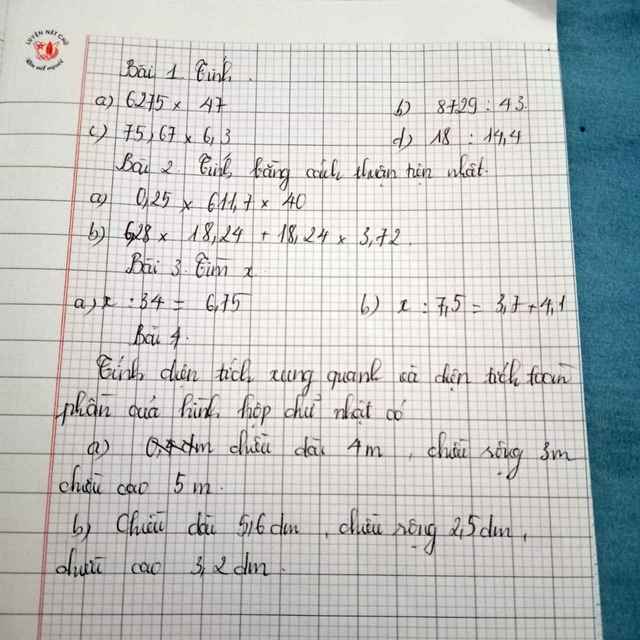 LUYỆN NÉT CHỮ
Rèn nết người
Bài 1 Tính.
a) 6275 x 47 b) 8729 : 43
c) 75,67 x 6,3 d) 18 : 14,4
Bài 2 Tính bằng cách thuận tiện nhất.
a) 0,25 x 611,7 x 40
b) 6,28 x 18,24 + 18,24 x 3,72.
Bài 3. Tìm x
a) x : 34 = 6,75 b) x : 7,5 = 3,7 + 4,1
Bài 4.
Tính diện tích xung quanh và diện tích toàn
phần của hình hộp chữ nhật có
a) chiều dài 4m, chiều rộng 3m
chiều cao 5m.
b) Chiều dài 5,6dm, chiều rộng 2,5dm,
chiều cao 3,2dm.